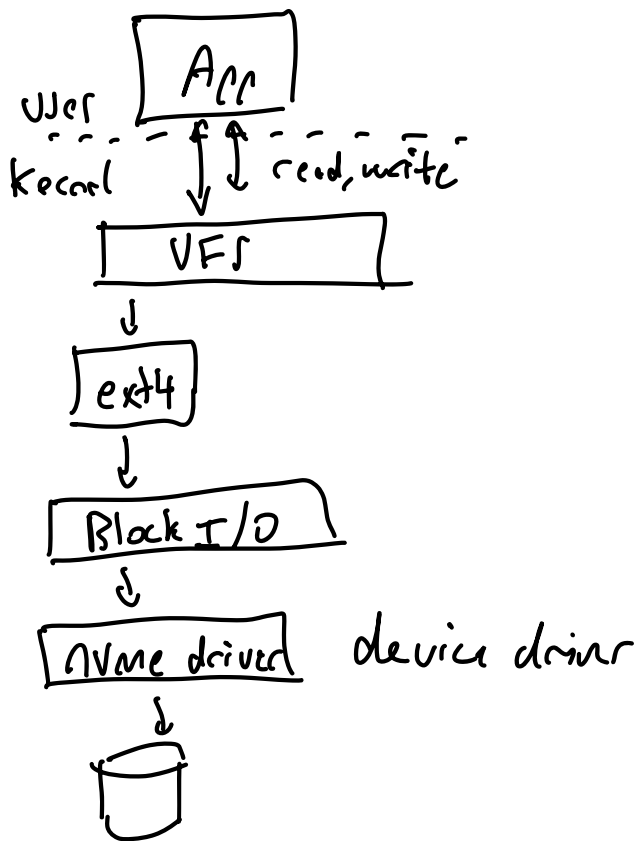 App
user
kernel
read, write
VFS
ext4
Block I/O
nvme driver
device driver